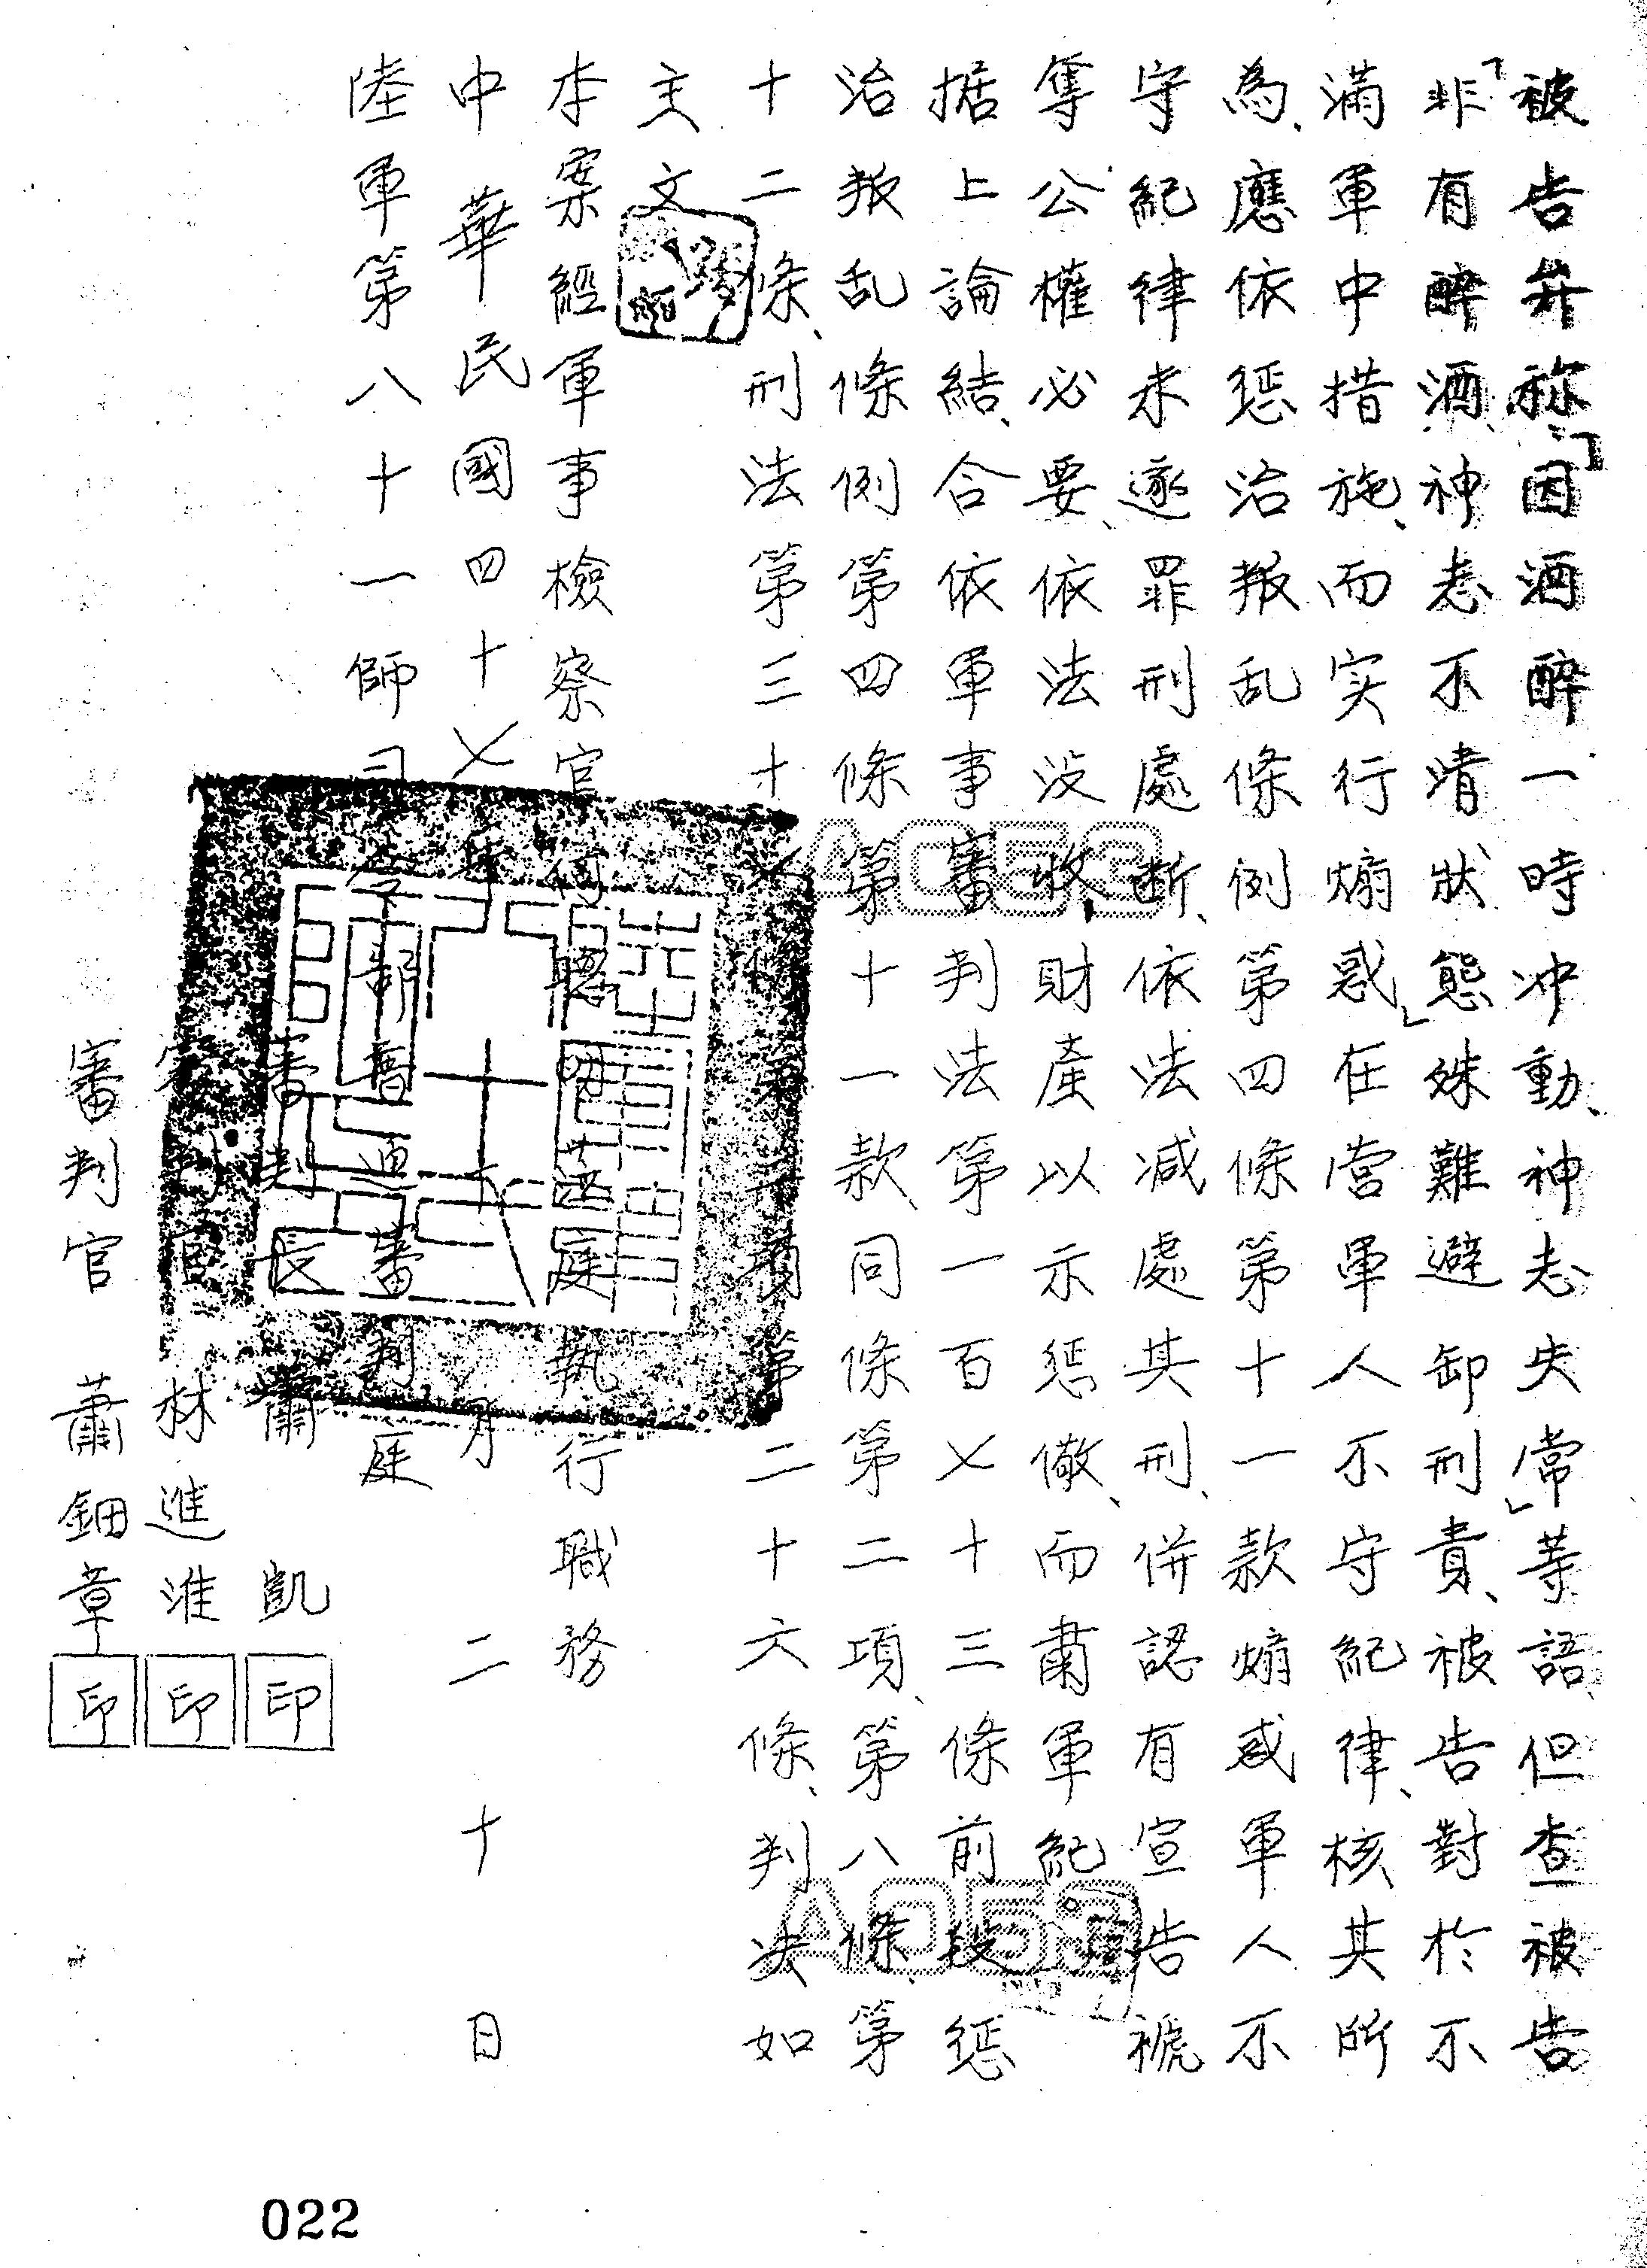 被告并称「因酒醉一時冲動、神志失常」等語、但查被告
非「有醉酒、神志不清狀態」殊難避卸刑責、被告對於不
滿軍中措施、而实行煽惑在营軍人不守紀律、核其所
為、應依惩治叛乱條例第四條第十一款煽惑軍人不
守紀律未遂罪刑處断、依法减處其刑、併認有宣告褫
奪公權必要、依法没收財產以示惩儆、而肅軍紀
据上論結、合依軍事審判法第一百七十三條前段惩
治叛乱條例第四條第十一款同條第二項、第八條、第
十二條、刑法第三十七條第二十六條、判决如
主文
本案經軍事檢察官聰明蒞庭執行職務
中華民國四十七年十一月二十日
陸軍第八十一師司令部普通審判庭
審判長 蕭凱 印
審判官 林進淮 印
審判官 蕭鈿章 印
A053
A053
022